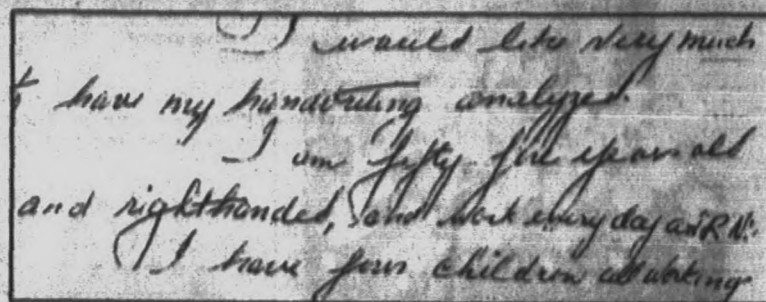 I would like very much
to have my handwriting analyzed.
I am fifty five years old
and right handed, and work every day as R.N.
I have four children all working